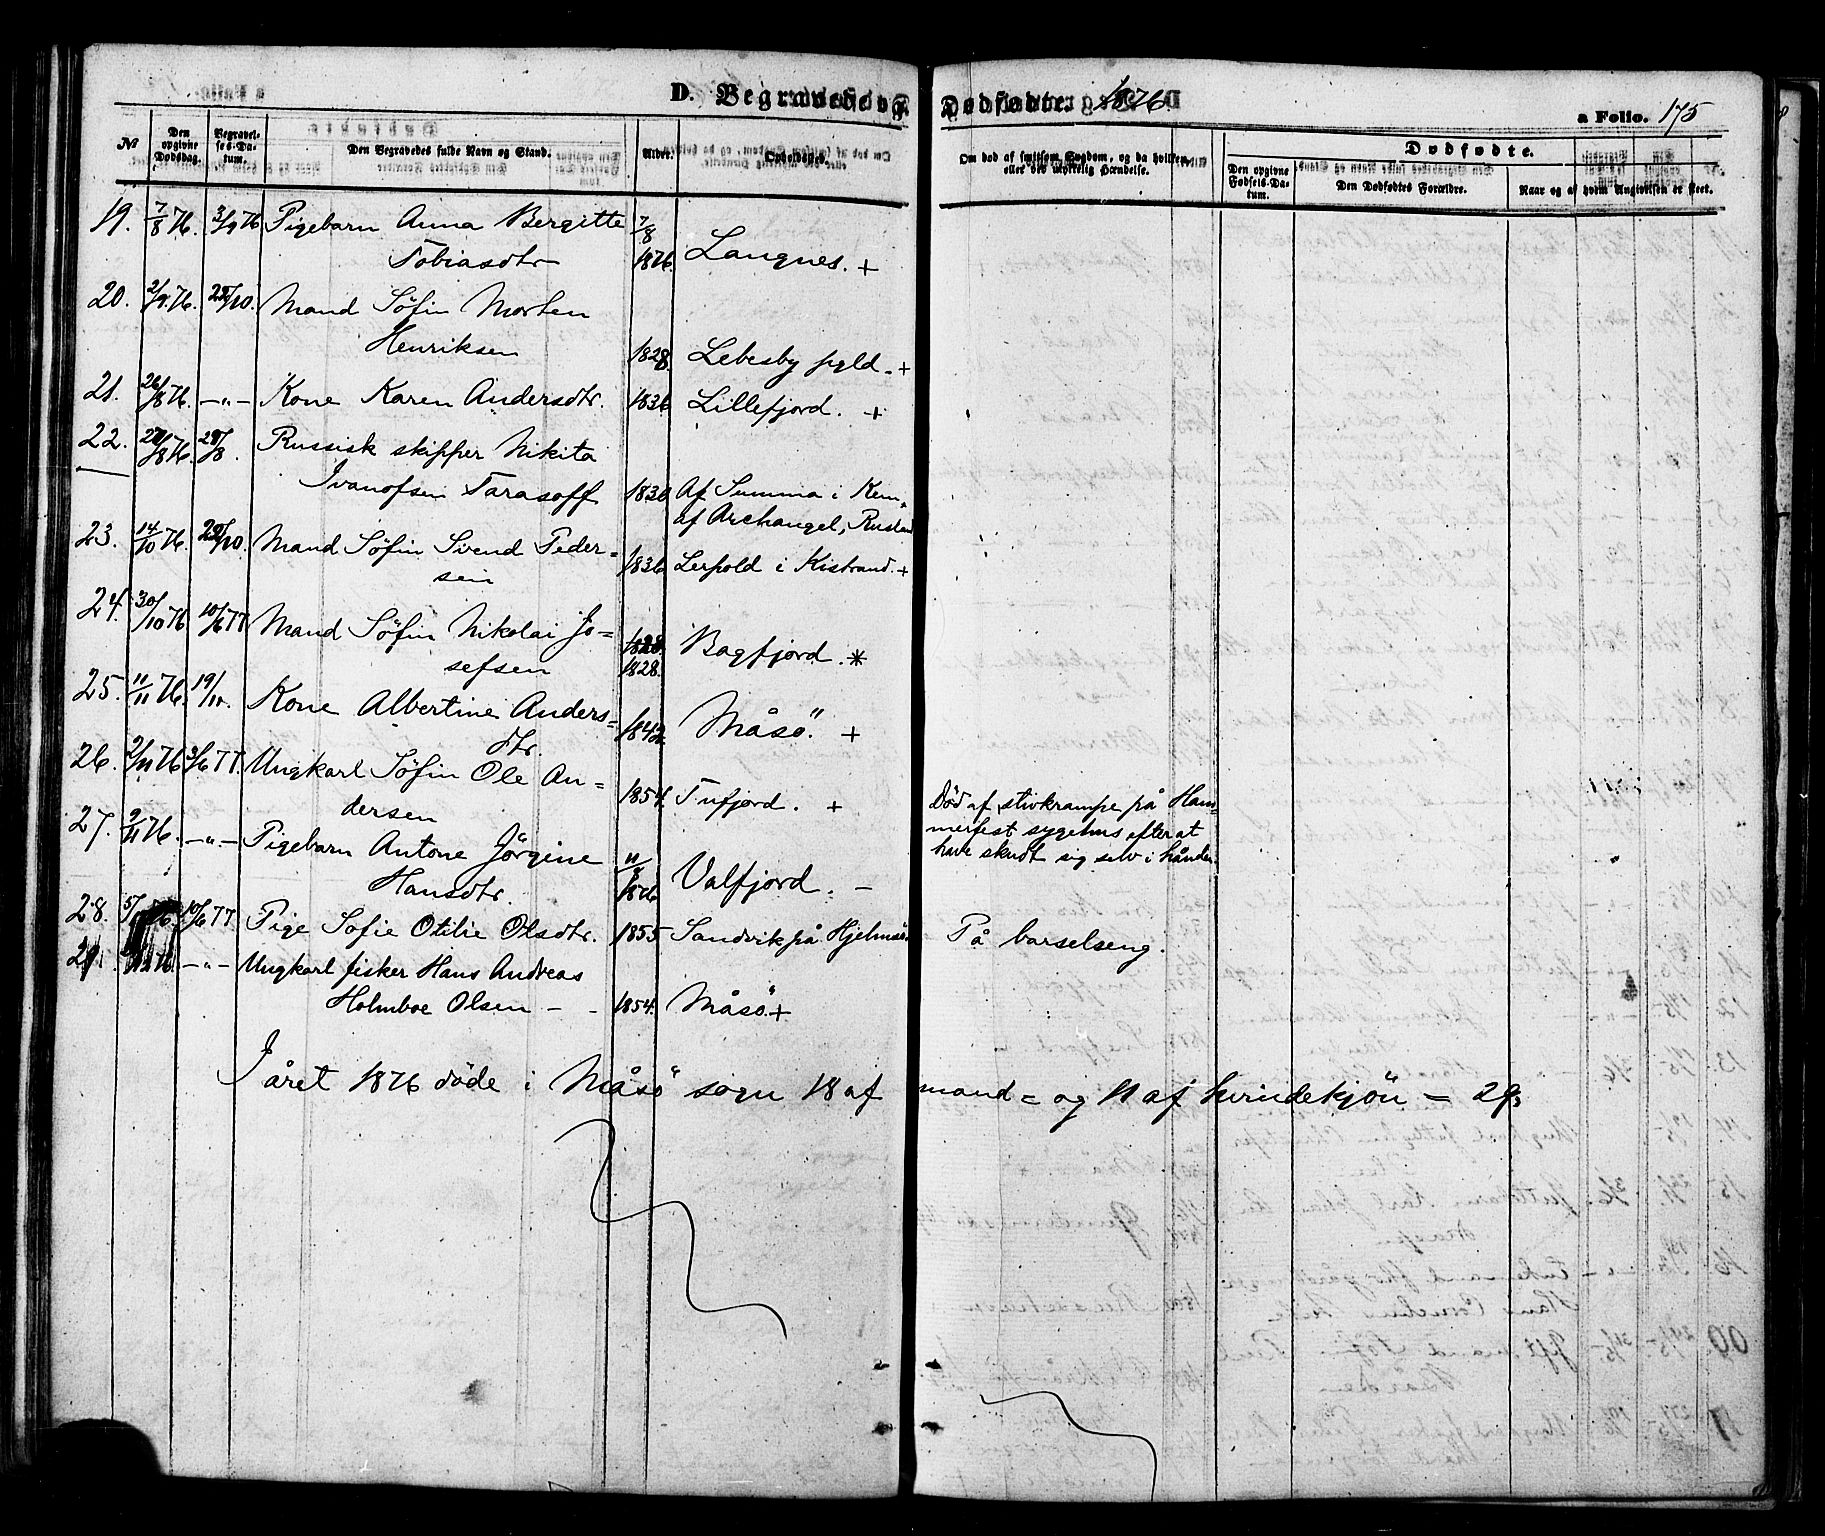 D. Begravede og Dødfødte. 1876
a Folio. 175
№
Den opgivne Dødsdag.
Begravelses-Datum.
Den Begravedes fulde Navn og Stand.
Alder.
Opholdssted.
Om død af smitsom Sygdom, og da hvilken, eller ved ulykkelig Hændelse.
Dødfødte.
Den opgivne Fødsels-Datum.
Den Dødfødtes Forældre.
Naar og af hvem Angivelsen er skeet.
19. 7/8 76. 3/9 76 Pigebarn Anna Bergitte 7/8
Tobiasdtr 1876. Langnes. +
20. 2/9 76. 22/10. Mand Søfin Morten
Henriksen 1828. Lebesby pgld. +
21. 26/8 76. -"- Kone Karen Andersdtr. 1836 Lillefjord. +
22. 27/8 76. 29/8. Russisk skipper Nikita
Ivanofsen Tarasoff 1830 Af Summa i Kem,
af Archangel, Rusland
23. 14/10 76. 22/10. Mand Søfin Svend Peder=
sen 1836 Lerpold i Kistrand. +
24. 30/10 76 10/6 77 Mand Søfin Nikolai Jo=
sefsen 1828. Bagfjord. *
25. 11/11 76. 19/11. Kone Albertine Anders=
dtr. 1842 Måsö. +
26. 2/11 76 3/6 77. Ungkarl Söfin Ole An=
dersen 1854. Tufjord. +
Död af stivkrampe på Ham=
merfest sygehus efter at
have skudt sig selv i hånden.
27. 9/11 76. -"- Pigebarn Antone Jörgine
Hansdtr. 1876 Valfjord. -
28. 10/6 77 Pige Sofie Otilie Olsdtr. 1855 Sandvik på Hjelmsö. På barselseng.
29. -"- Ungkarl fisker Hans Andreas
Holmboe Olsen - - 1854. Måsö +
I året 1876 döde i Måsö sogn 18 af mand= og 11 af kvindekjön = 29.